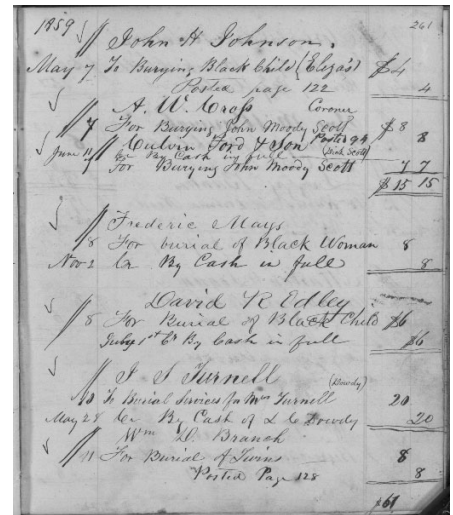 1859 261
John H Johnson.
May 7 To Burying Black Child (Eliza's) $4
Posted page 122 4
A. W. Cross Coroner
7 For Burying John Moody Scott $8
Calvin Ford & Son Posted 94 8
June 11 Cr By Cash in full (Dick Scott)
9 For Burying John Moody Scott 7 7
$15 15
Frederic Mays
8 For burial of Black Woman 8
Nov 2 Cr By Cash in full 8
David R Edley
8 For Burial of Black Child $6
July 1st Cr By Cash in full $6
J S Turnell (Dowdy)
10 To Burial Services for Mrs Turnell 20
May 28 Cr By Cash of L C Dowdy 20
Wm D. Branch
11 For Burial of Twins 8
Posted Page 128 8
$61